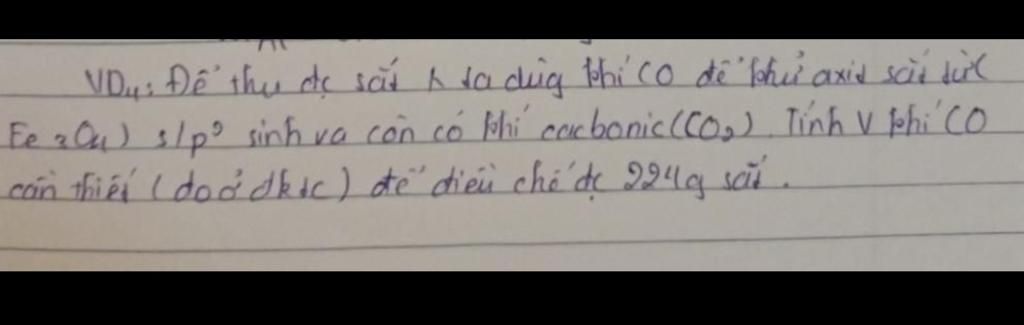 VD4: Để thu đc sắt ta dùg khí CO để khử oxit sắt từ (
Fe3O4) s/pº sinh ra còn có khí cacbonic (CO2). Tính V khí CO
cần thiết (đo ở đktc) để điều chế đc 224g sắt.